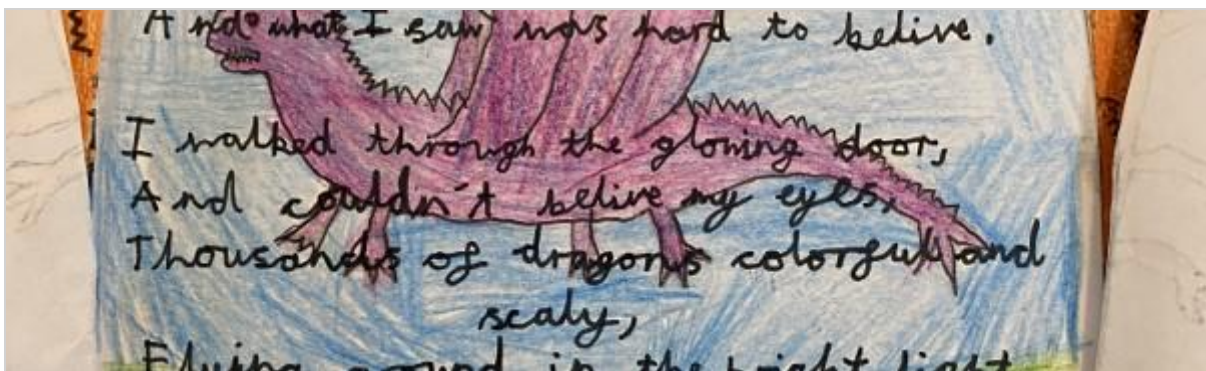 And what I saw was hard to belive.
I walked through the glowing door,
And couldn't belive my eyes,
Thousands of dragons colorful and
scaly,
Flying around in the bright light